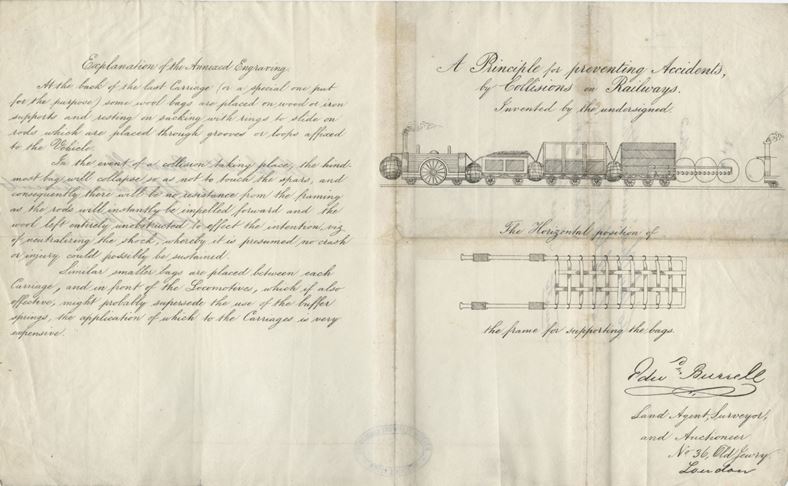 Explanation of the Annexed Engraving.
At the back of the last Carriage (or a special one put
for the purpose) some wool bags are placed on wood or iron
supports and resting on sacking with rings to slide on
rods which are placed through grooves or loops affixed
to the Vehicle.
In the event of a collision taking place, the hind-
most bag will collapse so as not to touch the spars, and
consequently there will be no resistance from the framing
as the rods will instantly be impelled forward and the
wool left entirely unobstructed to effect the intention, viz.
of neutralizing the shock, whereby it is presumed no crash
or injury could possibly be sustained.
Similar smaller bags are placed between each
Carriage, and in front of the Locomotives, which if also
effective, might probably supersede the use of the buffer
springs, the application of which to the Carriages is very
expensive.
A Principle for preventing Accidents,
by Collisions on Railways.
Invented by the undersigned.
The Horizontal position of
the frame for supporting the bags.
Edwd. Burrell
Land Agent, Surveyor,
and Auctioneer
No 36, Old Jewry
London